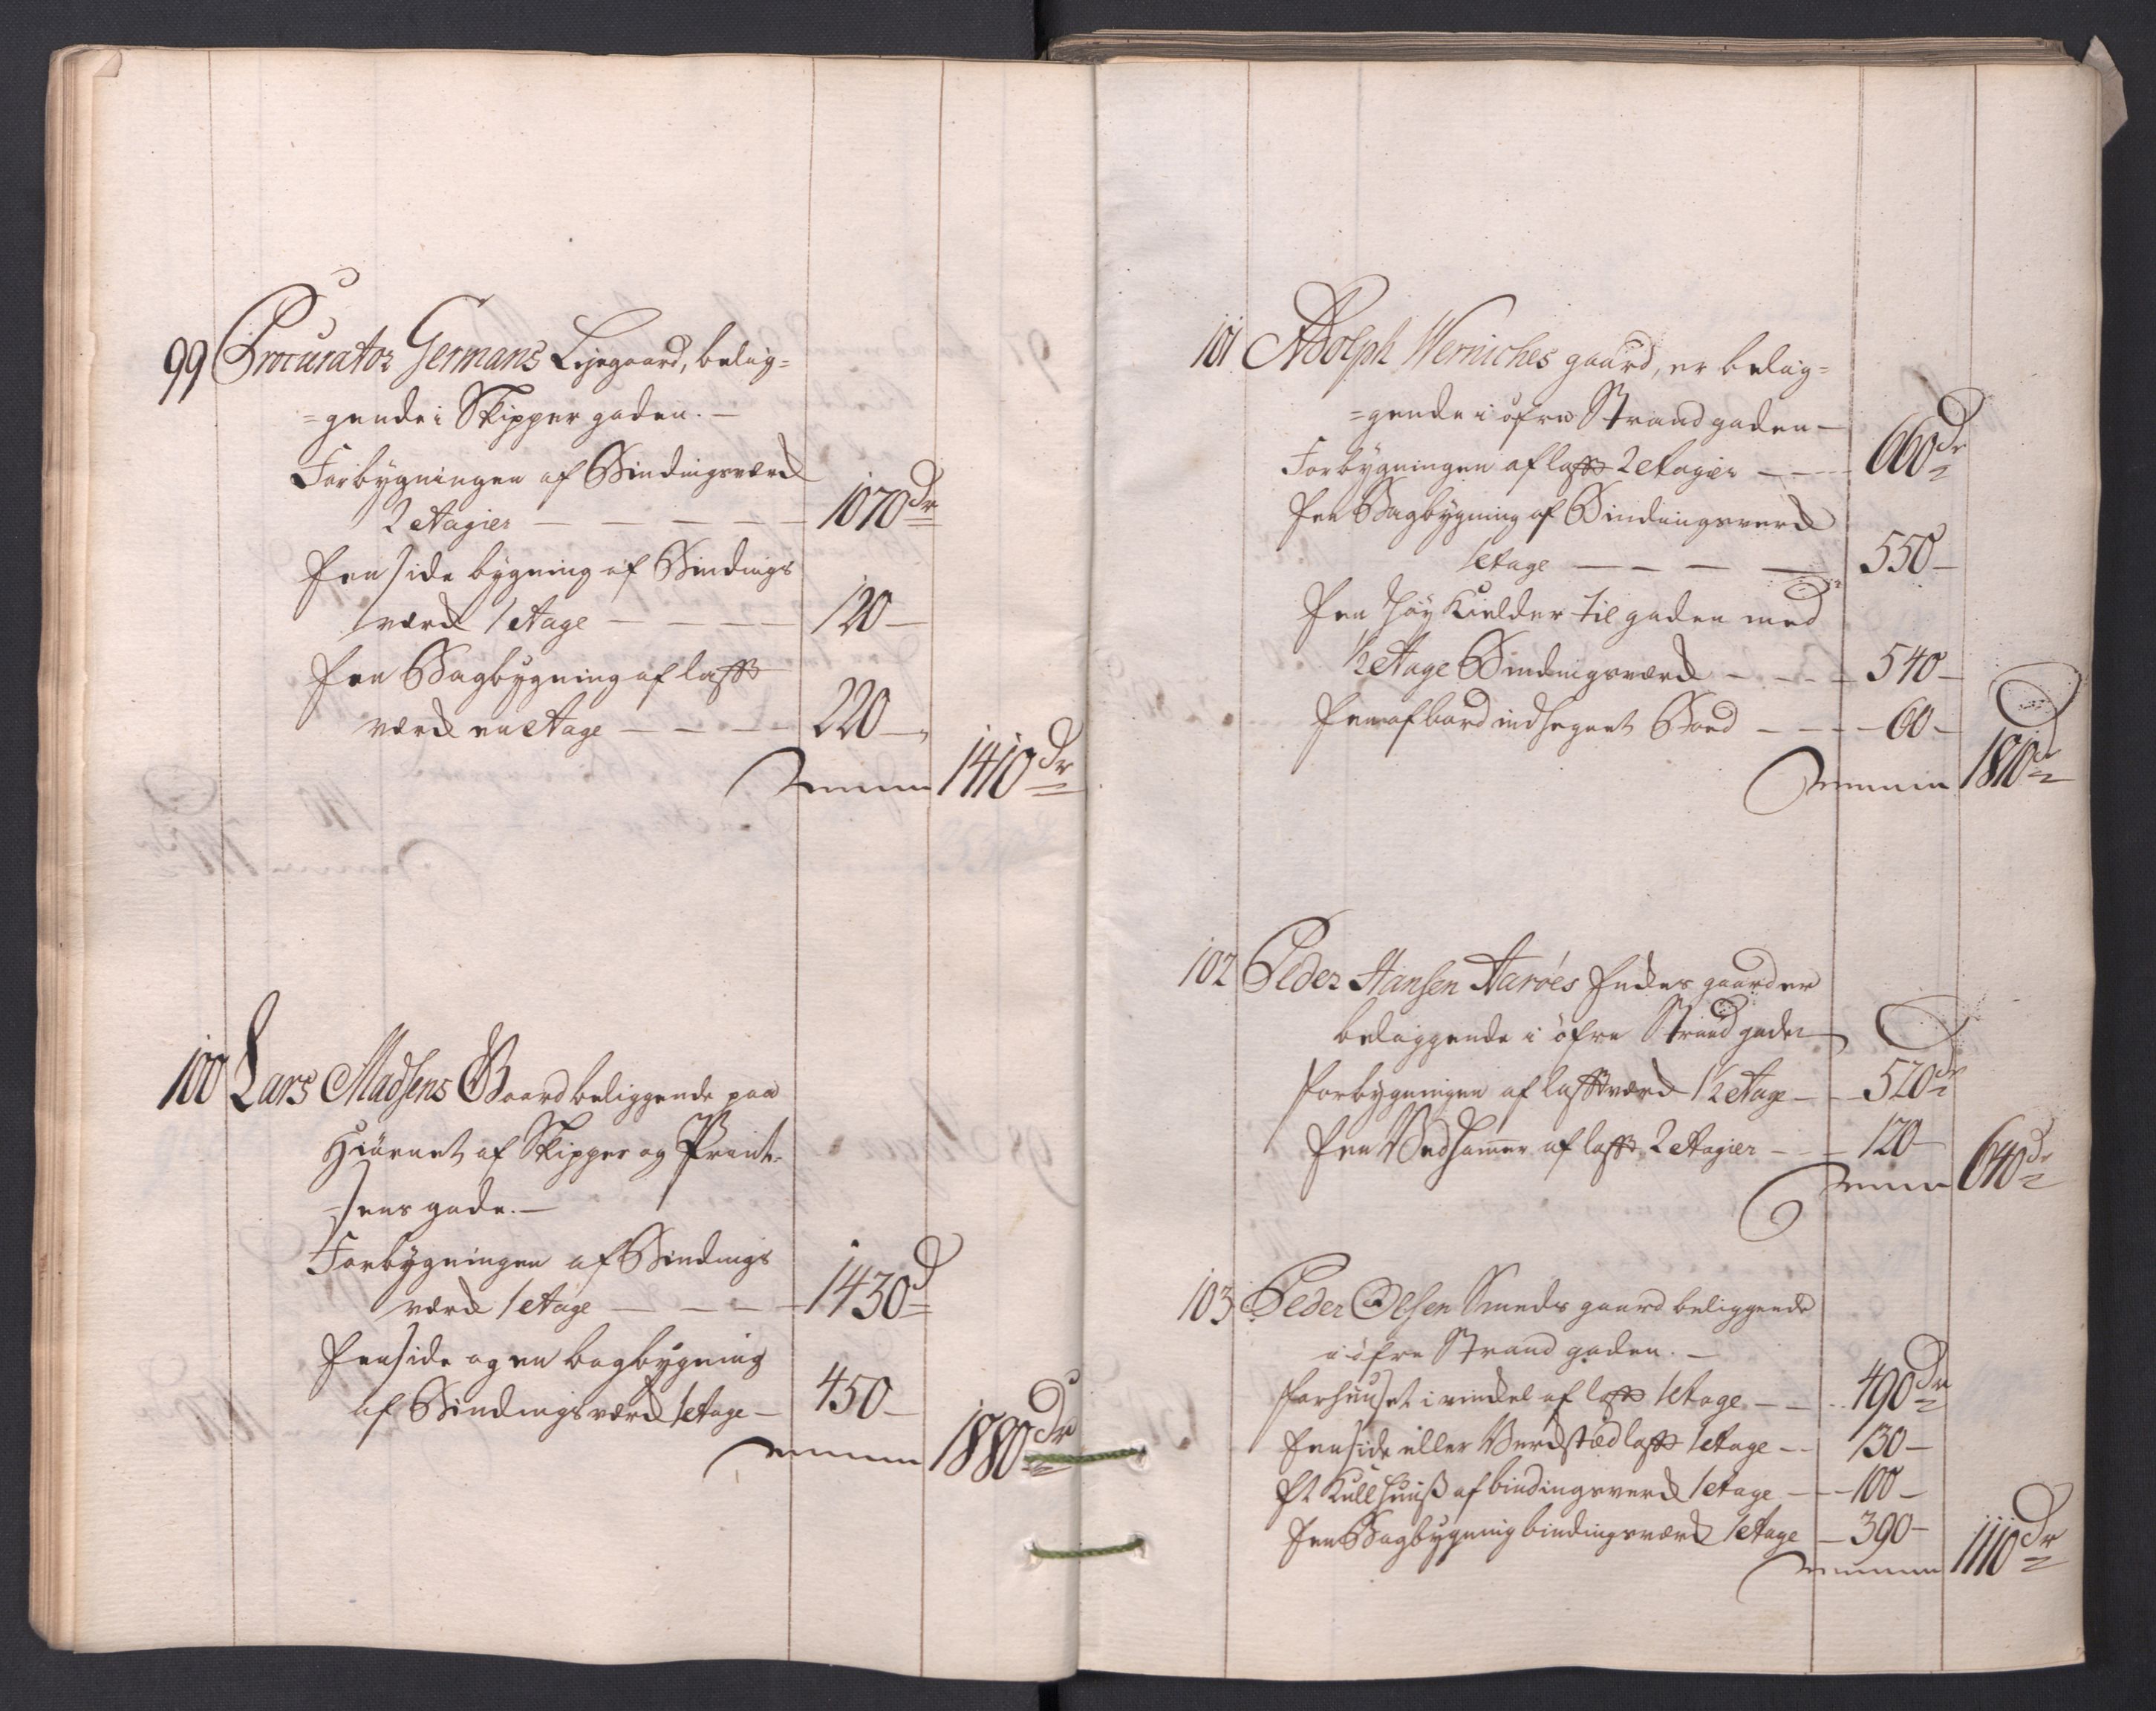 99 Procurator Germans Lejegaard, belig=
=gende i Skippergaden. —
Forbygningen af Bindingsværk
2 Etagier — — — — — 1070 Dr
Een Side bygning af Bindings
værk 1 Etage — — — — 120 —
Een Bagbygning af laft
værk en Etage — — — — 220 —
Summa 1410 Dr
100 Lars Madsens Gaard beliggende paa
Hiørnet af Skipper og Print-
=sens gade. —
Forbygningen af Bindings
værk 1 Etage — — — — 1430 D
Een Side og en bagbygning
af Bindingsværk 1 Etage — 450 —
Summa 1880 Dr
101 Adolph Werniches gaard, er belig=
=gende i øfre Strandgaden —
Forbygningen af laft 2 Etagier — — — 660 Dr
Een Bagbygning af Bindingsverk
1 Etage — — — — 550 —
Een Høy Kielder til gaden med
1/2 Etage Bindingsværk — — — 540 —
Een af bord indhegnet Boed — — — 60 —
Summa 1810 Dr
102 Peder Hansen Aarøes Enkes gaard er
beliggende i øfre Strandgaden
Forbygningen af laftværk 1 1/2 Etage — — 520 Dr
Een Vedhammer af laft 2 Etagier — — 120 —
Summa 640 Dr
103 Peder Olsen Smeds gaard beliggende
i øfre Strandgaden. —
Forhuuset i vinckel af laft 1 Etage — — 490 Dr
Een Side eller Verkstæd laft 1 Etage — — 130 —
Et Kullhuuß af bindingsverk 1 Etage — — 100 —
Een Bagbygning bindingsværk 1 Etage — 390 —
Summa 1110 Dr